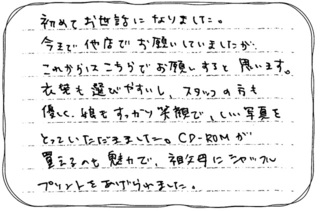 初めてお世話になりました。
今まで他店でお願いしていましたが、
これからはこちらでお願いすると思います。
衣装も選びやすいし、スタッフの方も
優しく、娘もすっかり笑顔で、いい写真を
とっていただきました。CD-ROMが
買えるのも魅力で、祖父母にシャッフル
プリントをあげられました。